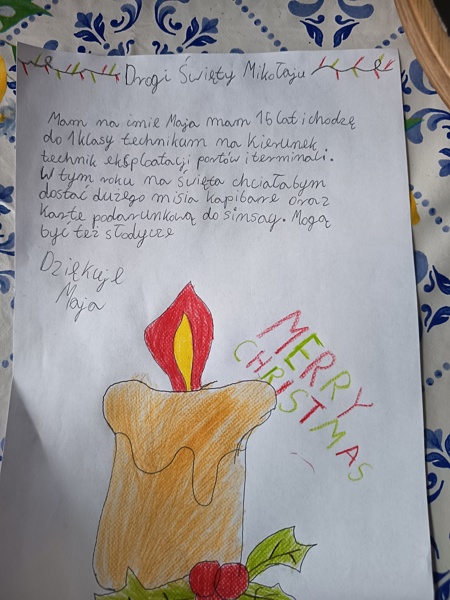 Drogi Święty Mikołaju
Mam na imie Maja mam 16 lat i chodzę
do 1 klasy technikum na kierunek
technik eksploatacji portów i terminali.
W tym roku na święta chciałabym
dostać dużego misia kapibare oraz
karte podarunkową do sinsay. Mogą
być też słodycze
Dziękuję
Maja
MERRY
CHRISTMAS